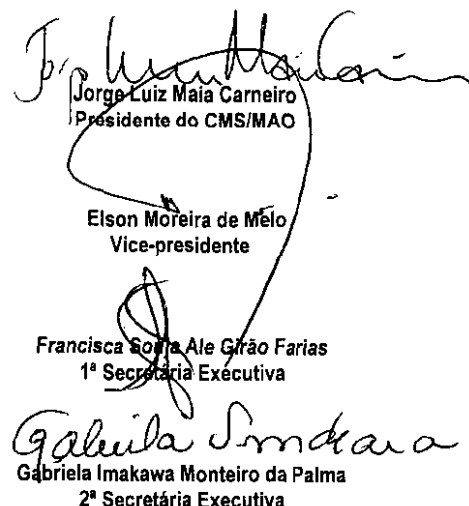 Jorge Luiz Maia Carneiro
Presidente do CMS/MAO
Elson Moreira de Melo
Vice-presidente
Francisca Sonja Ale Girão Farias
1ª Secretária Executiva
Gabriela
Gabriela Imakawa Monteiro da Palma
2ª Secretária Executiva